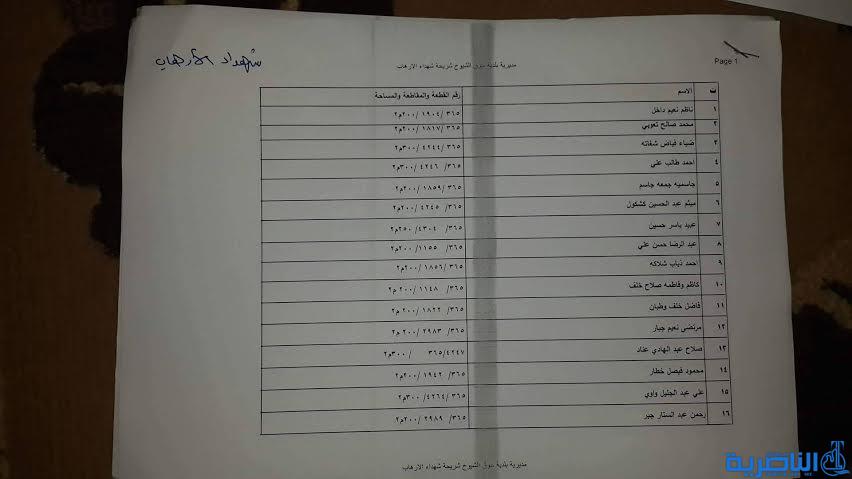 شهداء الأرهاب
Page 1
مديرية بلدية سوق الشيوخ شريحة شهداء الارهاب
ت الاسم رقم القطعة والمقاطعة والمساحة
١ ناظم نعيم داخل ٣٦٥/ ١٩٠٤ /٢٠٠م٢
٢ محمد صالح تعويبي ٣٦٥/ ١٨١٧ /٢٠٠م٢
٣ ضياء فياض شفاته ٣٦٥/ ٤٢٤٤ /٣٠٠م٢
٤ احمد طالب علي ٣٦٥/ ٤٢٤٦ /٣٠٠م٢
٥ جاسميه جمعه جاسم ٣٦٥/ ١٨٥٩ /٢٠٠م٢
٦ ميثم عبد الحسين كشكول ٣٦٥/ ٤٢٤٥ /٢٠٠م٢
٧ عبيد ياسر حسين ٣٦٥/ ٤٣٠٤ /٢٥٠م٢
٨ عبد الرضا حسن علي ٣٦٥/ ١١٥٥ /٢٠٠م٢
٩ احمد ذياب شلاكه ٣٦٥/ ١٨٥٦ /٢٠٠م٢
١٠ كاظم وفاطمه صلاح خلف ٣٦٥/ ١١٤٨ /٢٠٠ م٢
١١ فاضل خلف وظبان ٣٦٥/ ١٨٢٢ /٢٠٠م٢
١٢ مرتضى نعيم جبار ٣٦٥/ ٢٩٨٣ /٢٠٠ م٢
١٣ صلاح عبد الهادي عناد ٣٦٥/٤٢٤٧ /٣٠٠م٢
١٤ محمود فيصل خطار ٣٦٥/ ١٩٤٢ /٢٠٠م٢
١٥ علي عبد الجليل واوي ٣٦٥/ ٤٢٦٤ /٣٠٠م٢
١٦ رحمن عبد الستار جبر ٣٦٥/ ٢٩٨٩ /٢٠٠م٢
مديرية بلدية سوق الشيوخ شريحة شهداء الارهاب
الناصرية